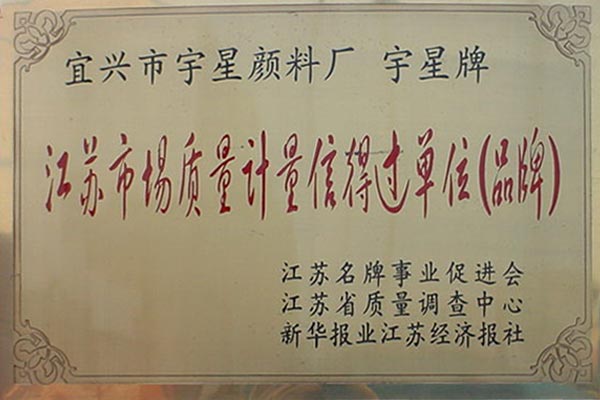 宜兴市宇星颜料厂 宇星牌
江苏市场质量计量信得过单位(品牌)
江苏名牌事业促进会
江苏省质量调查中心
新华报业江苏经济报社